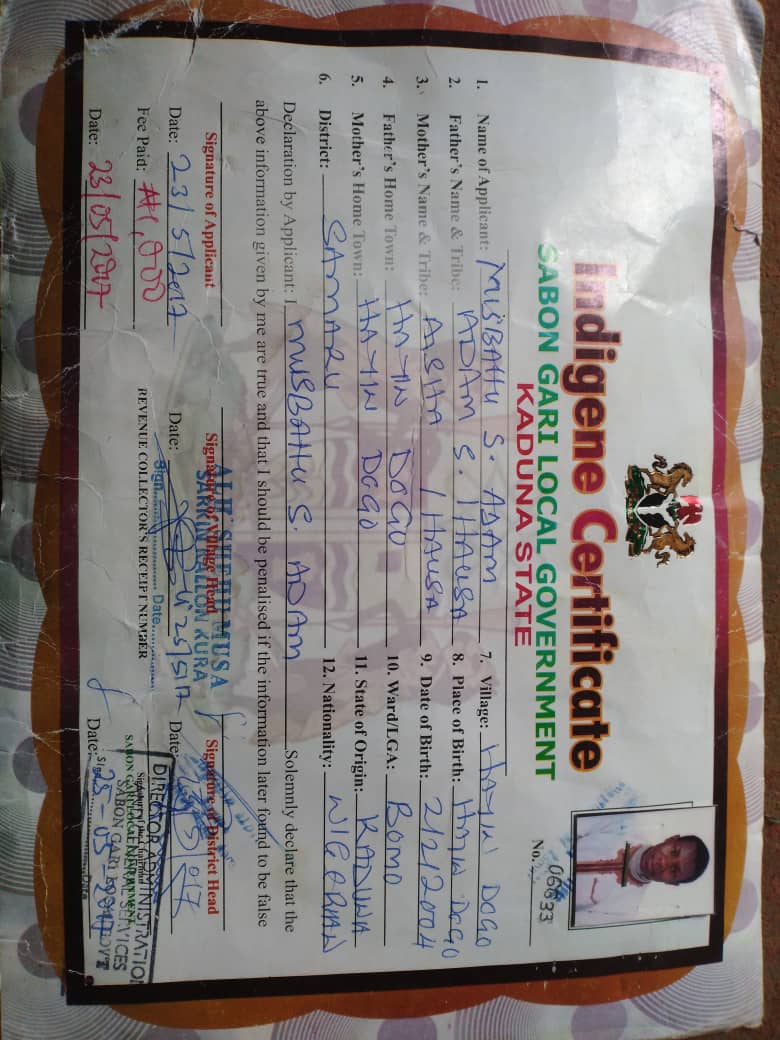 Indigene Certificate
SABON GARI LOCAL GOVERNMENT
KADUNA STATE
No. 06833
1. Name of Applicant: MISBAHU S. ADAM
2. Father's Name & Tribe: ADAM S. / HAUSA
3. Mother's Name & Tribe: AISHA / HAUSA
4. Father's Home Town: HAYIN DOGO
5. Mother's Home Town: HAYIN DOGO
6. District: SAMARU
7. Village: HAYIN DOGO
8. Place of Birth: HAYIN DOGO
9. Date of Birth: 2/2/2004
10. Ward/LGA: BOMO
11. State of Origin: KADUNA
12. Nationality: NIGERIAN
Declaration by Applicant: I MUSBAHU S. ADAM Solemnly declare that the
above information given by me are true and that I should be penalised if the information later found to be false
Signature of Applicant
Date: 23/5/2017
Fee Paid: ₦1,000
Date: 23/05/2017
ALH. SHEHU MUSA
Signature of Village Head
Date:
Sign. Date
REVENUE COLLECTOR'S RECEIPT NUMBER
Signature of District Head
Date:
DIRECTOR
SABON GARI LOCAL
Date: 25-05